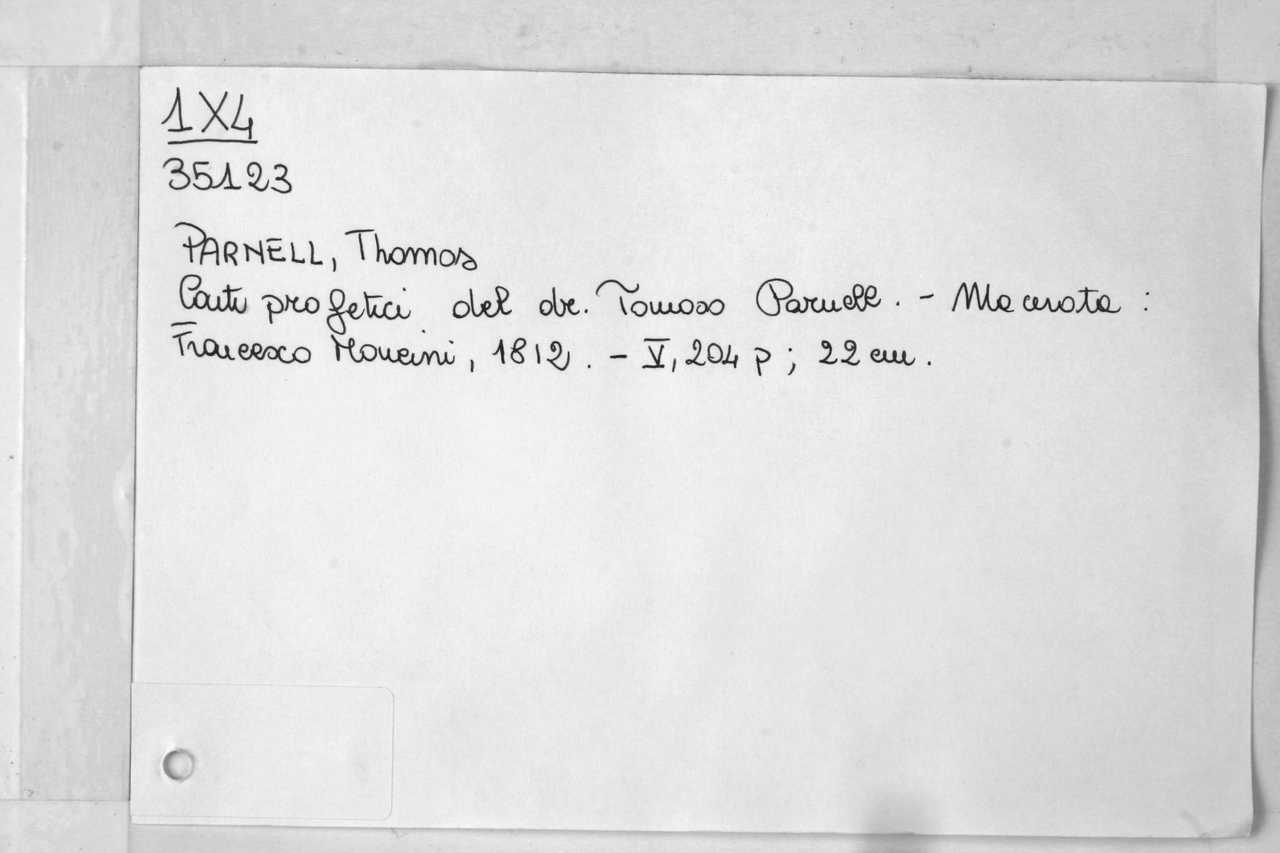 1X4
35123
PARNELL, Thomas
Canti profetici del dr. Tomaso Parnell. - Macerata :
Francesco Mancini, 1812. - V, 204 p ; 22 cm.